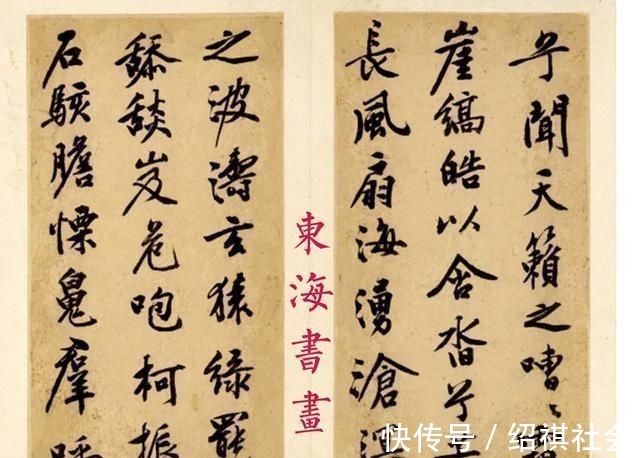 兮聞天籟之嘈
崖縞皓以合沓兮
長風扇海湧滄溟
之波濤玄猿綠羆
舔舕岌危咆柯振
石駭膽慄羣呼
東海書畫
快传号／绍祺社会